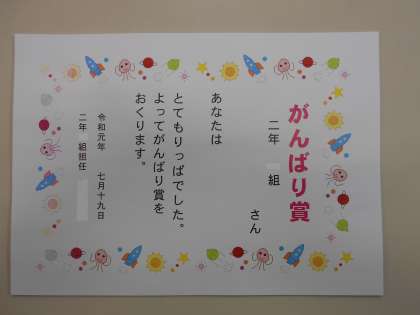 がんばり賞
二年 組
さん
あなたは
とてもりっぱでした。
よってがんばり賞を
おくります。
令和元年 七月十九日
二年 組担任